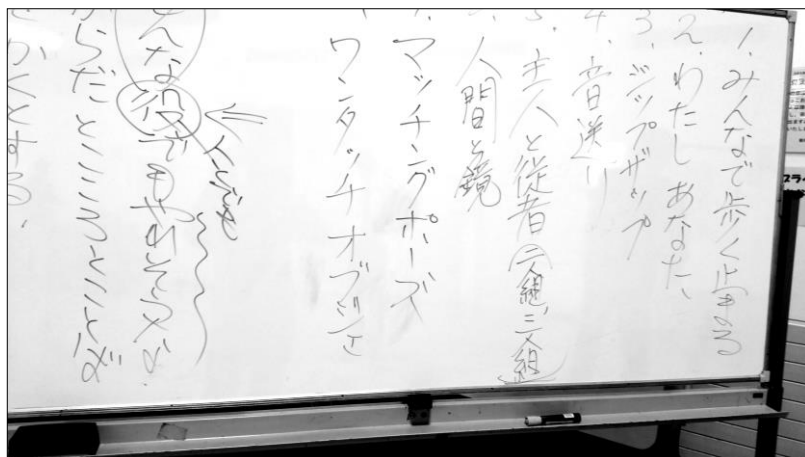 1.みんなで歩く止まる
2.わたしあなた、
3.ジップザップ
4.音送り
5.主人と従者(二人組、三人組)
人間と鏡
マッチングポーズ
ワンタッチオブジェ
んな役でもやるそのが
らだとこころとことば
くとする、